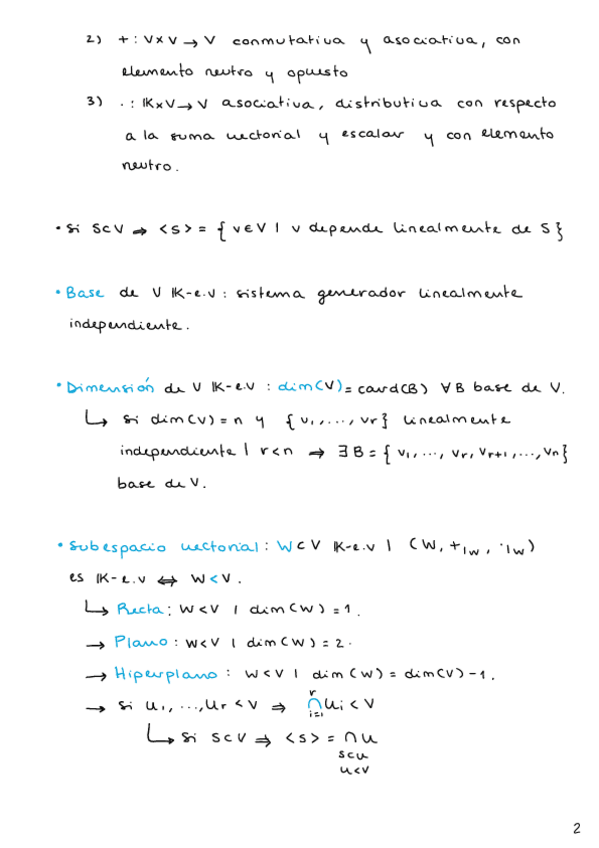 2) + : V×V → V conmutativa y asociativa, con
elemento neutro y opuesto
3) · : 𝕂×V → V asociativa, distributiva con respecto
a la suma vectorial y escalar y con elemento
neutro.
• Si S⊂V ⇒ <S> = { v∈V | v depende linealmente de S }
• Base de V 𝕂-e.v : sistema generador linealmente
independiente.
• Dimensión de V 𝕂-e.v : dim(V) = card(B) ∀B base de V.
↳ Si dim(V) = n y { v₁, ..., vr } linealmente
independiente | r<n ⇒ ∃B = { v₁, ..., vr, vr+1, ..., vn }
base de V.
• Subespacio vectorial : W⊂V 𝕂-e.v | (W, +|w, ·|w)
es 𝕂-e.v ⇔ W<V.
↳ Recta : W<V | dim(W) = 1.
→ Plano : W<V | dim(W) = 2.
→ Hiperplano : W<V | dim(W) = dim(V) - 1.
→ Si U₁, ..., Ur < V ⇒ r ∩ i=1 Ui < V
↳ Si S⊂V ⇒ <S> = ∩ U
S⊂U
U<V
2